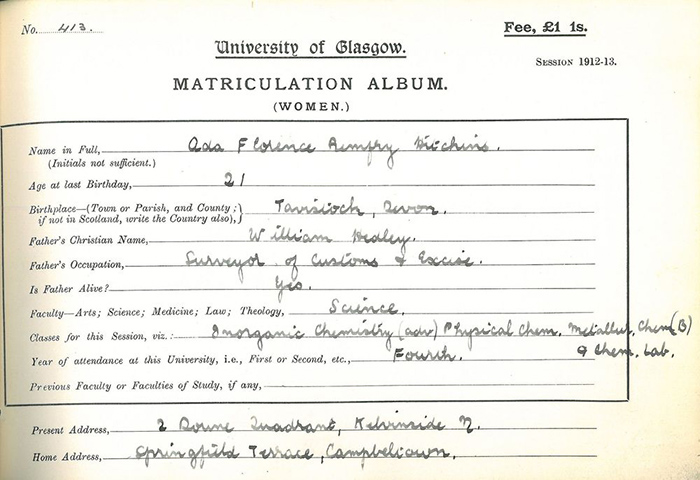 No. 413. Fee, £1 1s.
University of Glasgow.
SESSION 1912-13.
MATRICULATION ALBUM.
(WOMEN.)
Name in Full, Ada Florence Remfry Hitchins.
(Initials not sufficient.)
Age at last Birthday, 21
Birthplace—(Town or Parish, and County; Tavistock, Devon.
if not in Scotland, write the Country also),
Father's Christian Name, William Hedley.
Father's Occupation, Surveyor of Customs & Excise.
Is Father Alive? Yes.
Faculty—Arts; Science; Medicine; Law; Theology, Science.
Classes for this Session, viz.: Inorganic Chemistry (adv) Physical Chem. Metallur. Chem (B)
Year of attendance at this University, i.e., First or Second, etc., Fourth. & Chem. Lab.
Previous Faculty or Faculties of Study, if any,
Present Address, 2 Doune Quadrant, Kelvinside N.
Home Address, Springfield Terrace, Campbeltown.